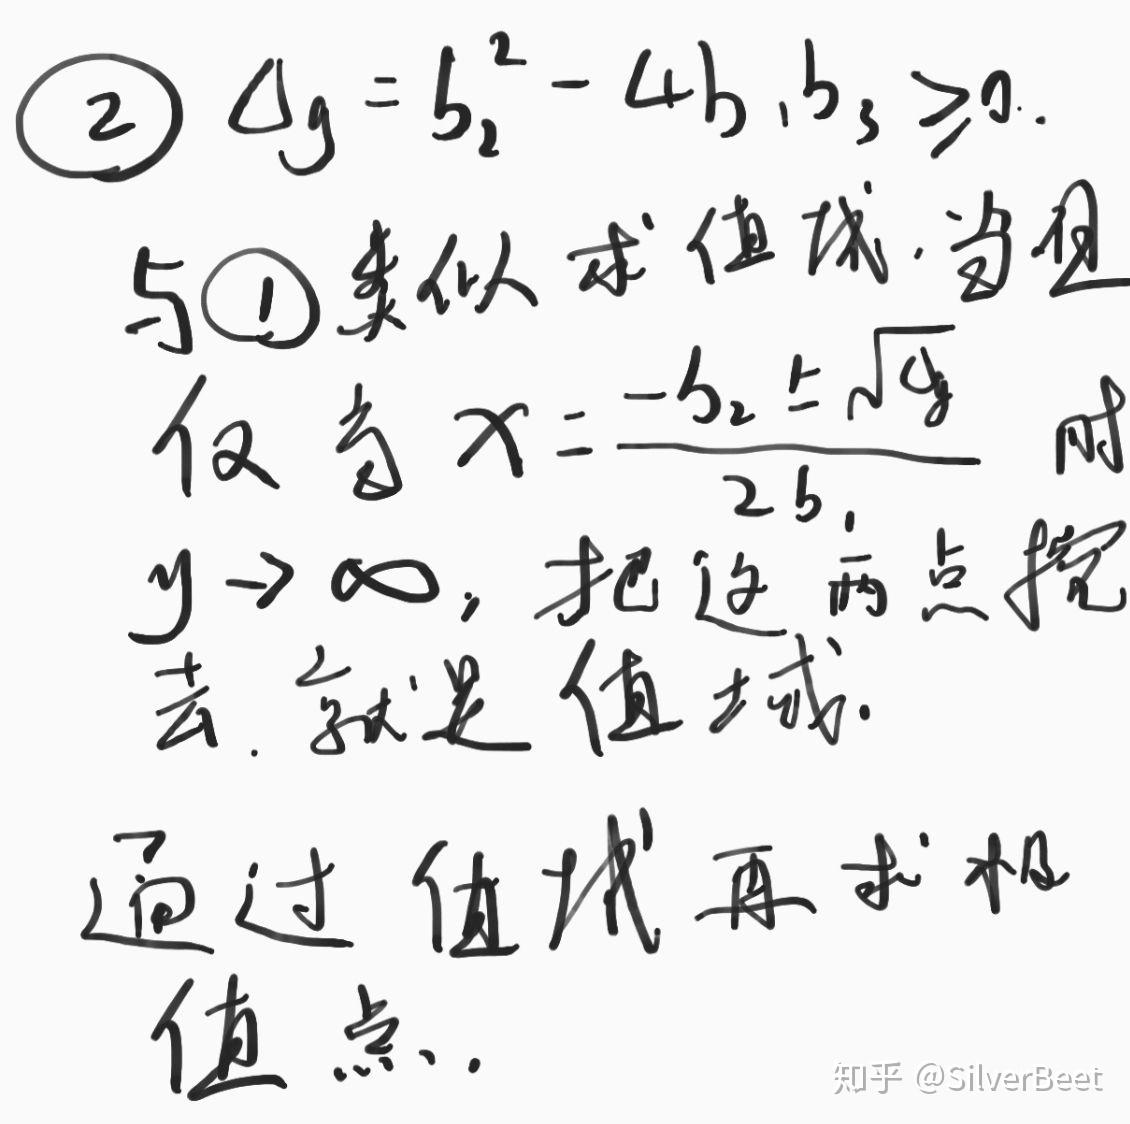 ② Δg = b₂² - 4b₁b₃ ≥ 0.
与①类似求值域.当且
仅当 x = (-b₂ ± √Δg) / 2b₁ 时
y → ∞, 把这两点挖
去.就是值域.
通过值域再求极
值点.
知乎 @SilverBeet